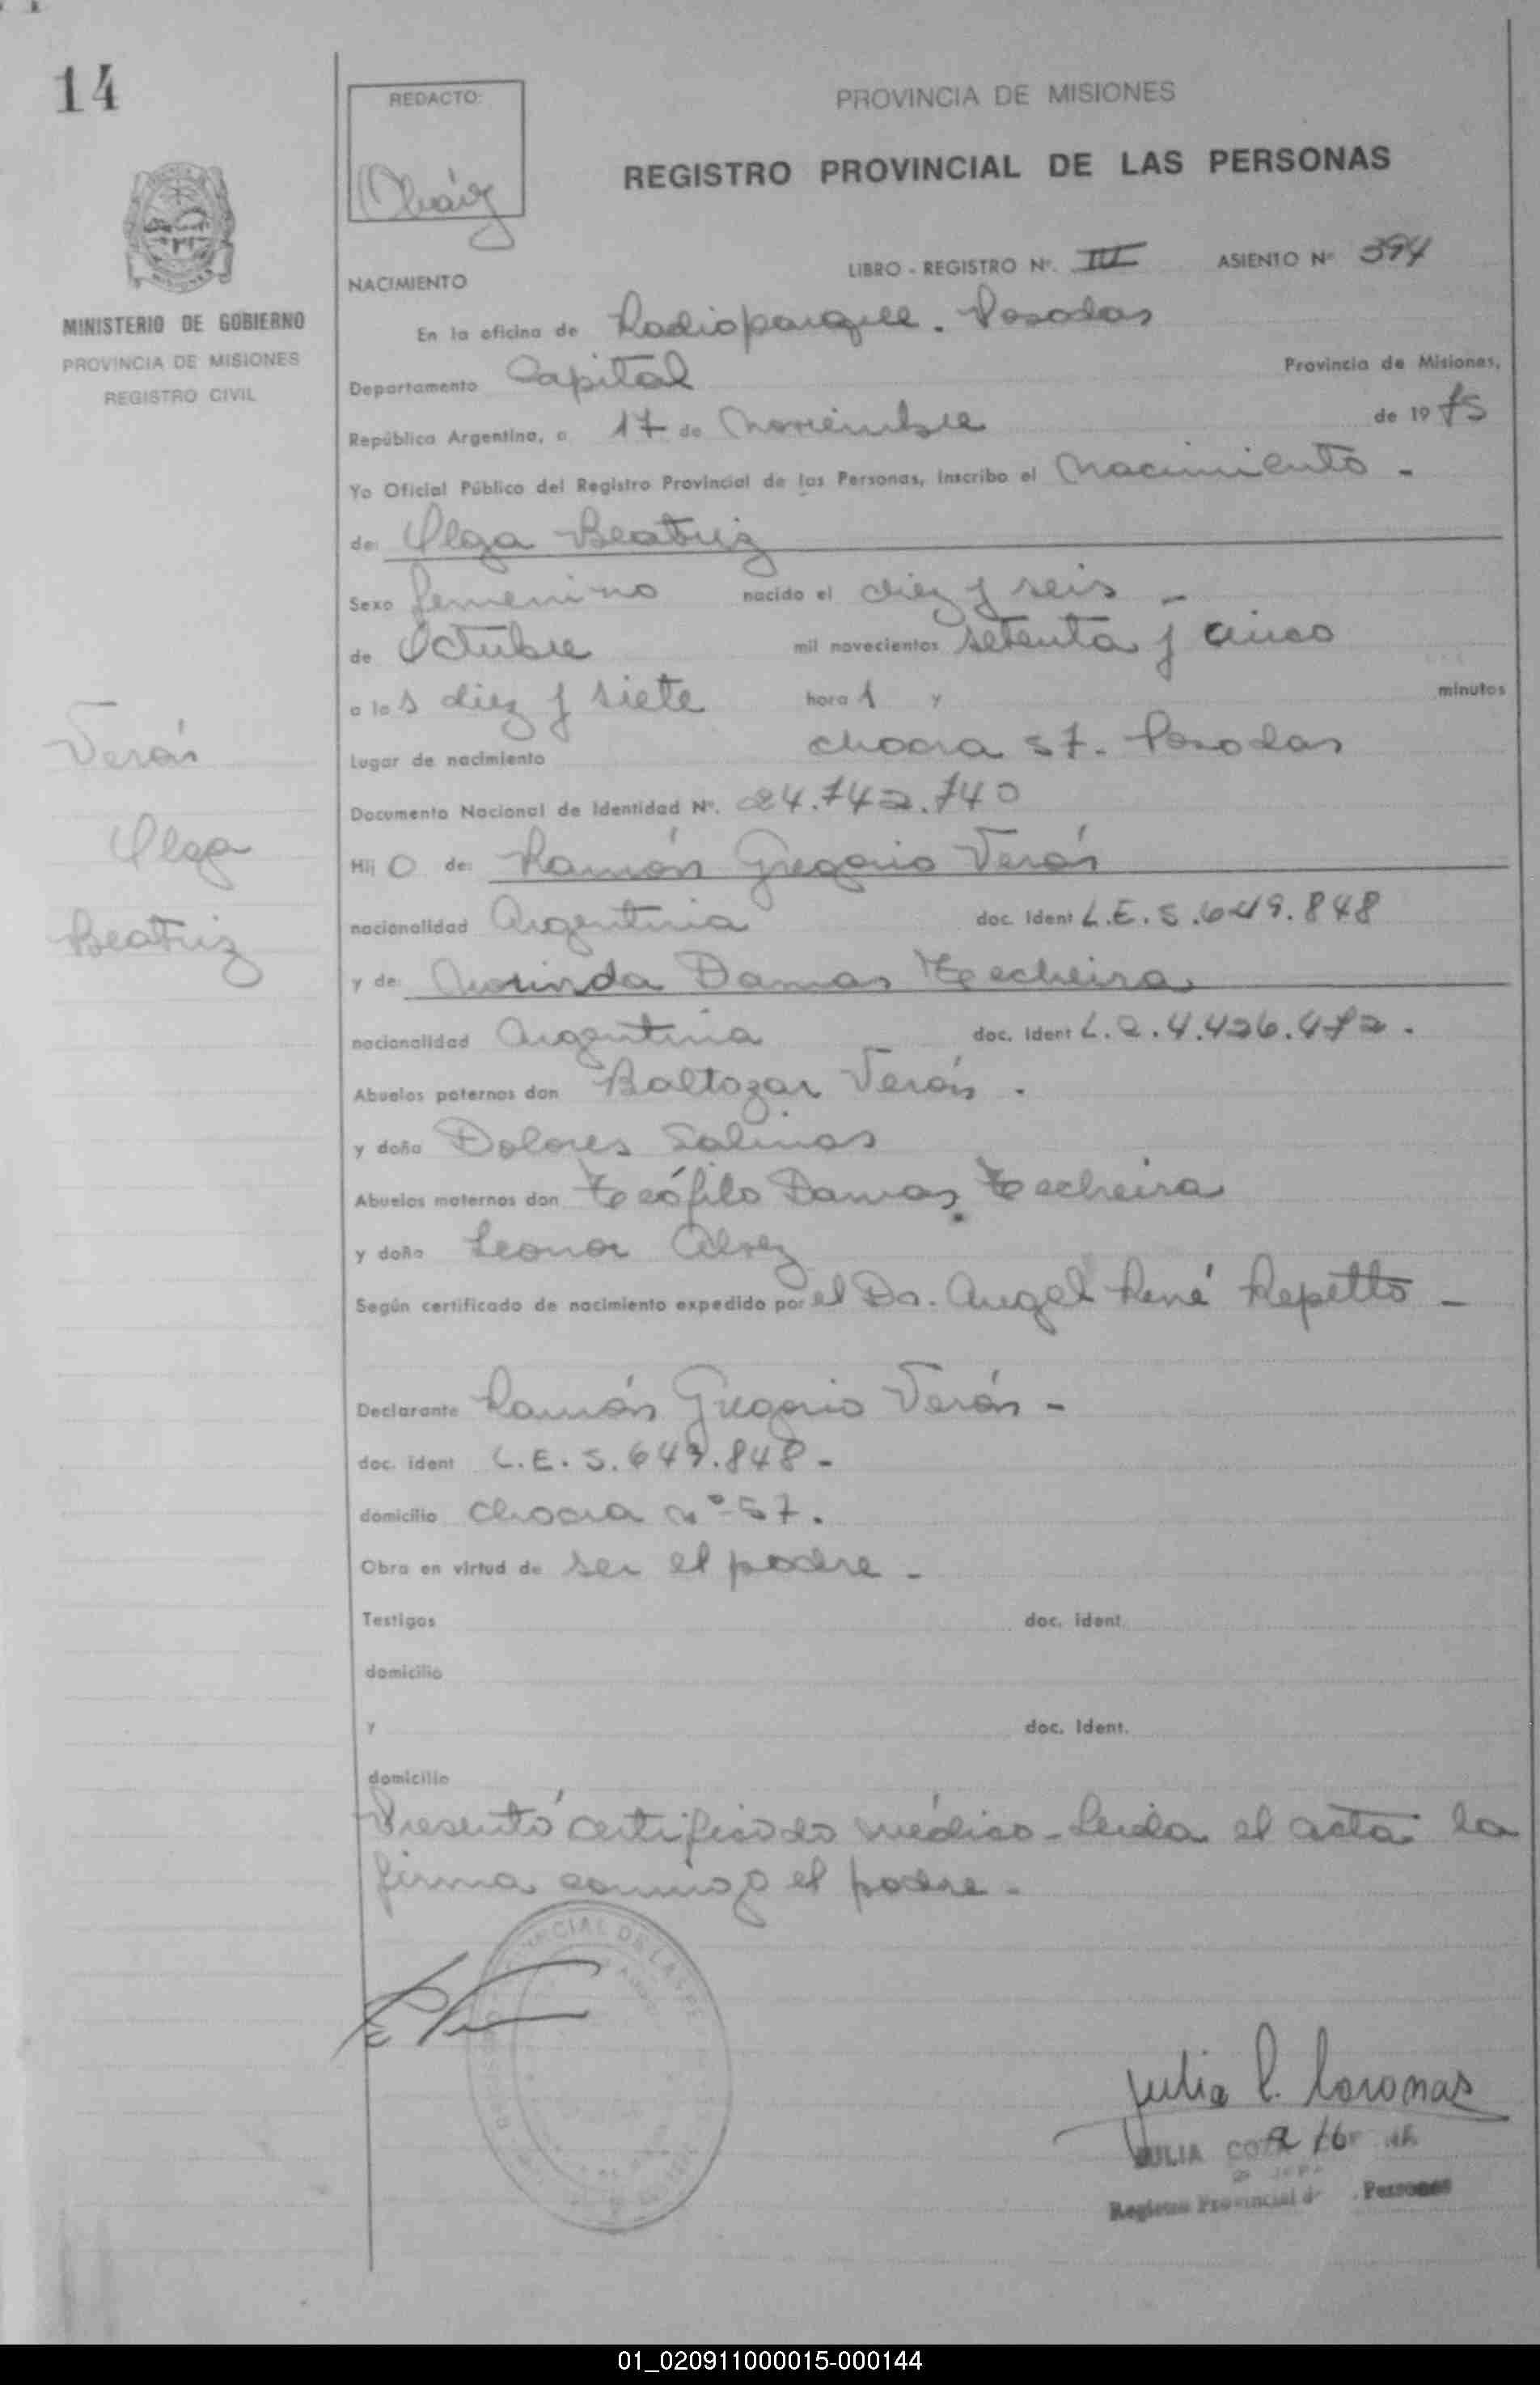 14
REDACTO:
PROVINCIA DE MISIONES
REGISTRO PROVINCIAL DE LAS PERSONAS
NACIMIENTO
LIBRO - REGISTRO Nº. III ASIENTO Nº 394
MINISTERIO DE GOBIERNO
PROVINCIA DE MISIONES
REGISTRO CIVIL
En la oficina de Radioparque. Posadas
Departamento Capital Provincia de Misiones,
República Argentina, a 17 de Noviembre de 1975
Yo Oficial Público del Registro Provincial de las Personas, inscribo el Nacimiento -
de: Olga Beatriz
Sexo femenino nacido el diez y seis -
de Octubre mil novecientos setenta y cinco
a las diez y siete hora 1 y minutos
Lugar de nacimiento chacra 57. Posadas
Documento Nacional de Identidad Nº. 24.742.740
Hij O de: Ramón Gregorio Verón
nacionalidad Argentina doc. Ident L.E. 5.649.848
y de: Damas Techeira
nacionalidad Argentina doc. Ident L.C. 4.426.472.
Abuelos paternos don Baltazar Verón.
y doña Dolores Salinas
Abuelos maternos don Teófilo Damas Techeira
y doña Leonor Alvez
Según certificado de nacimiento expedido por el Dr. Angel René Repetto -
Declarante Ramón Gregorio Verón -
doc. ident L.E. 5.649.848 -
domicilio Chacra nº 57.
Obra en virtud de ser el padre -
Testigos doc. ident.
domicilio
y doc. Ident.
domicilio
Presentó certificado médico - Leida el acta la
firma conmigo el padre -
Verón
Olga
Beatriz
Julia C. Coronas
JULIA
Registro Provincial de Personas
01_020911000015-000144